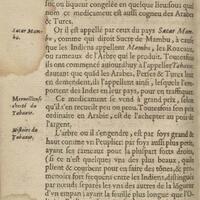 sinc, ou liqueur congelée en quelque lieu sous quel
nom ce medicament est aussi cogneu des Arabes
& Turcs.
Sacar Mam-
bu.
Or il est appellé par ceux du pays Sacar Mam-
bu, comme qui diroit Sucre de Mambu, à cause
que les Indiens appellent Mambu, les Rozeaux,
ou rameaux de l'Arbre qui le produit. Toutesfois
ils ont commencé aujourdhuy à l'appeller Tabaxir
dautant que quand les Arabes, Perses & Turcs leur
en demandent, ils l'appellent ainsi, & lesquels le por-
tent des Indes en leur pays, pour en faire trafic.
Merveilleuse
cherté du
Tabaxir.
Ce medicament se vend à grand prix, selon
qu'il en croist ou peu ou prou. Toutesfois son prix
ordinaire en Arabie, est de l'achepter au poids de
l'argent.
Histoire du
Tabaxir.
L'arbre ou il s'engendre, est par foys grand &
haut comme un Peuplier: par foys aussi plus petit,
ayant les rameaux pour la pluspart forts droits
(si ce n'est quelques uns des plus beaux, qu'ils
plient & courbent pour en faire des tõnes, & pro-
menoirs fort frequents entre les Indiens, distinguez
par nœuds separez les uns des autres de la lõgueur
d'un empan) ayant la feuille plus longue que l'O-